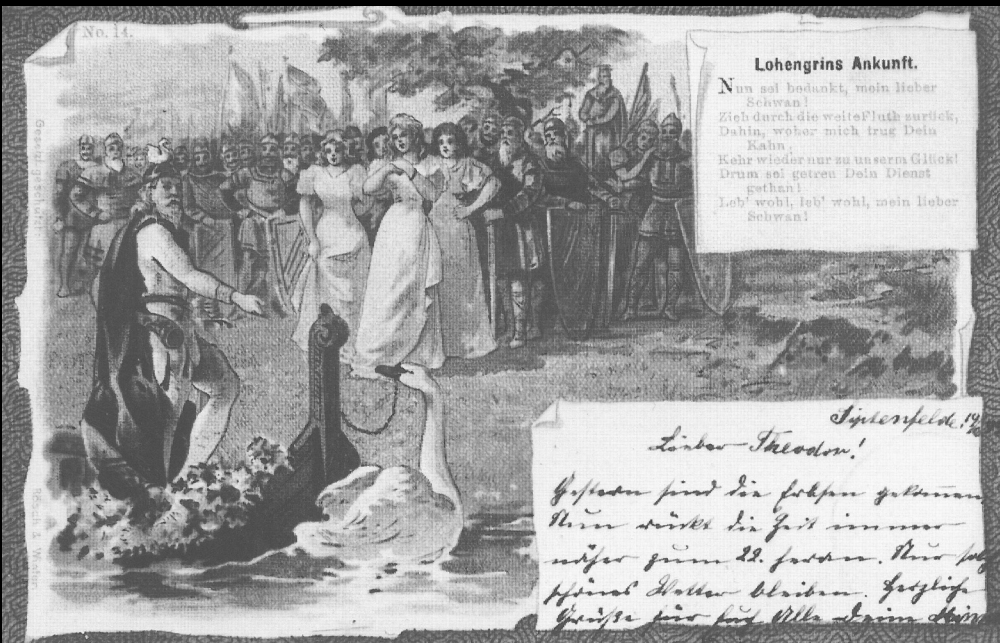 No. 14.
Lohengrins Ankunft.
Nun sei bedankt, mein lieber
Schwan!
Zieh durch die weite Fluth zurück,
Dahin, woher mich trug Dein
Kahn,
Kehr wieder nur zu unserm Glück!
Drum sei getreu Dein Dienst
gethan!
Leb' wohl, leb' wohl, mein lieber
Schwan!
Gesetzl. geschützt
Siptenfelde, 19
Lieber Theodor!
Gestern sind die Erbsen gekommen
Nun rückt die Zeit immer
näher zum 22. heran. Nur
schönes Wetter bleiben. Herzliche
Grüße für Alle Deine